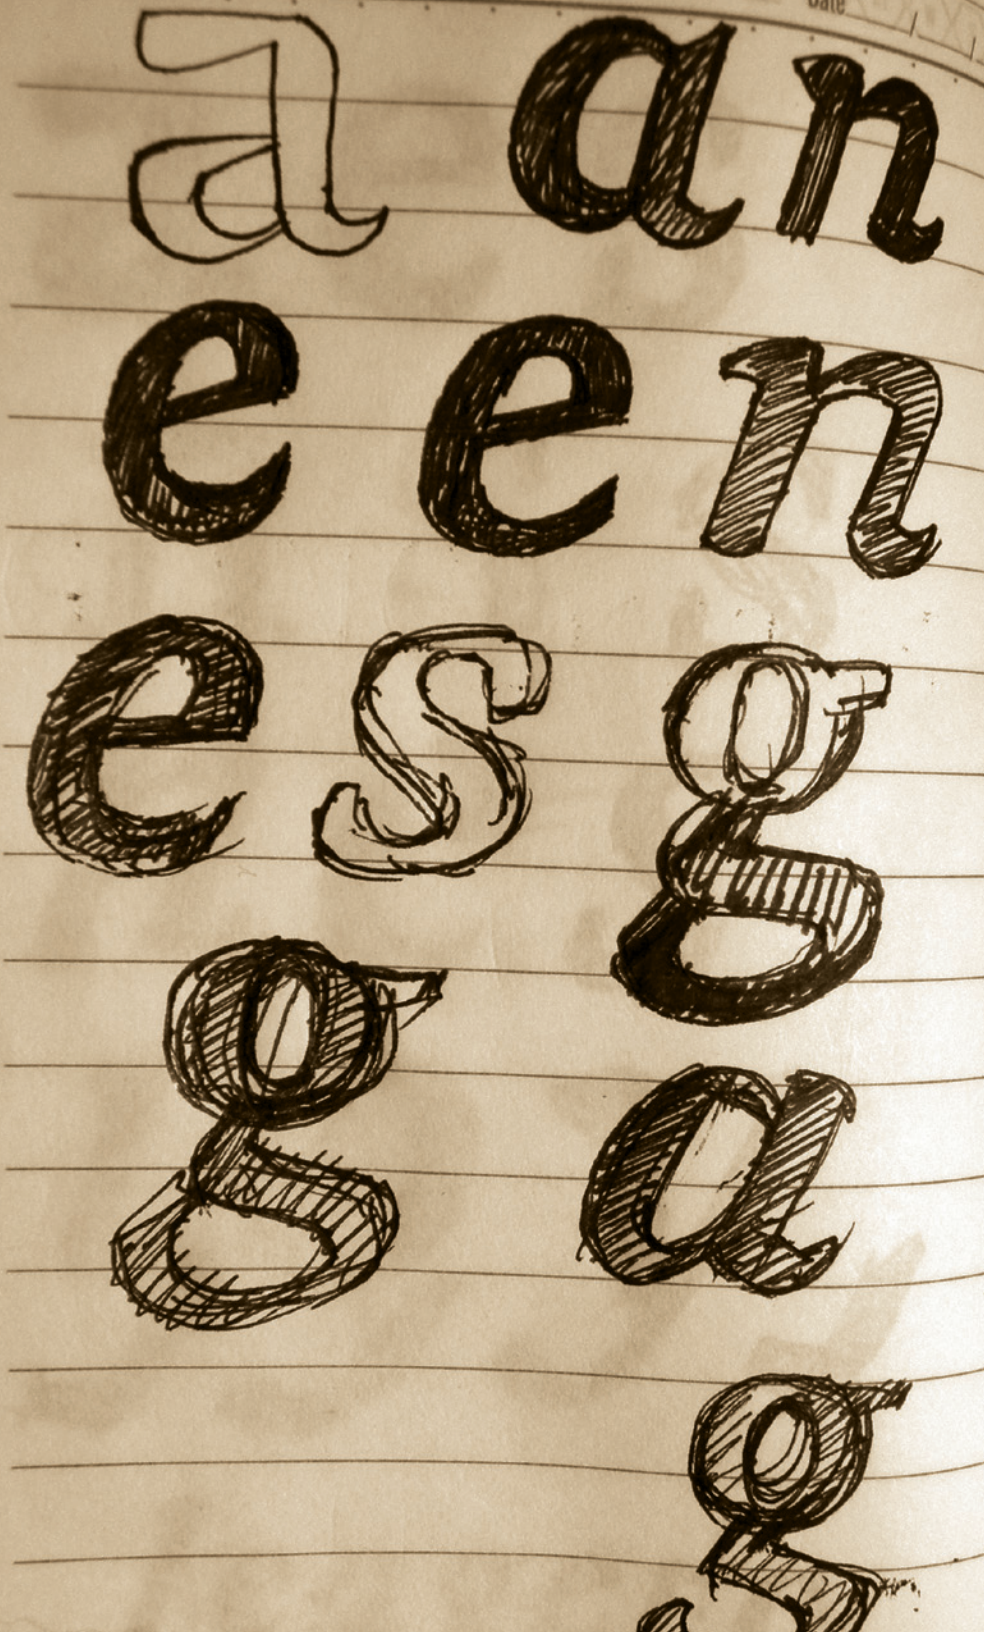 Date
a a n
e e n
e s g
g a
g